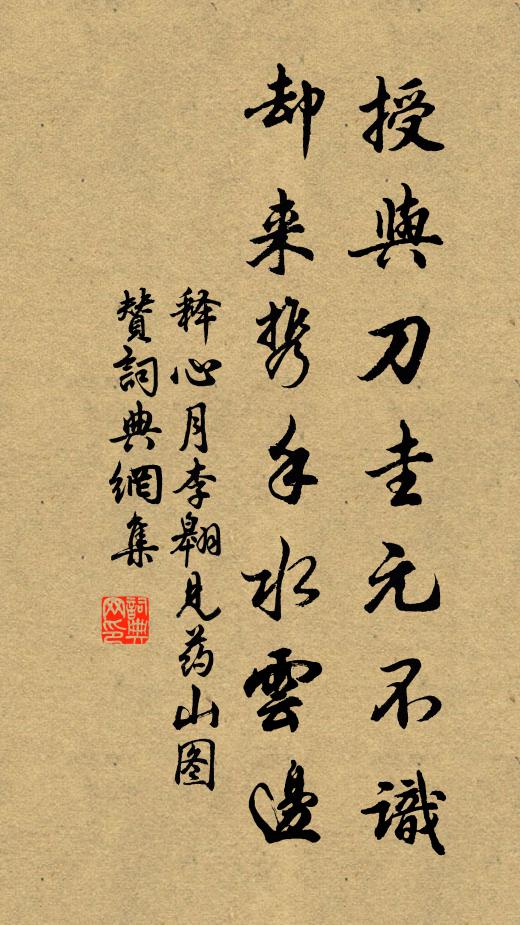 授與刀圭元不識
却来携手水雲邊
释心月李翱见药山图
赞詞典網集
詞典网印